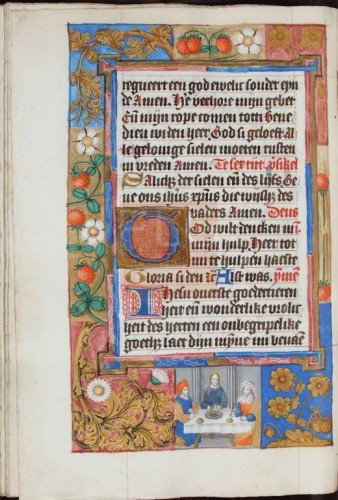 regneert een god ewelic sonder eyn
de Amen. He verhore mijn gebet
En mijn rope comen totti Bene
dien wi den heer God si geloeft Al
le gelouige sielen moeten rusten
in vreden Amen. Te sext tijt
Salich der sielen en des lijfs Ge
ue ons ihus xpus die wijsh des
vaders Amen. Deus
God wilt dencken in
mijn hulp. Heer tot
mi te hulpen haeste
Gloria si den Als it was. ymne
Ihesu ouerste goedertieren
heit en wonderlike vroliic
heit des herten een onbegripelike
goeth laet dijn mijne im beuaen